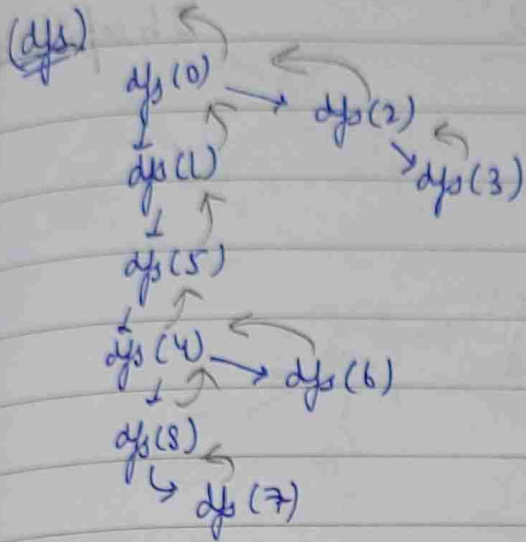 (dfs)
dfs(0) → dfs(2)
↓
dfs(1) ↘ dfs(3)
↓
dfs(5)
↓
dfs(4) → dfs(6)
↓
dfs(8)
↳ dfs(7)